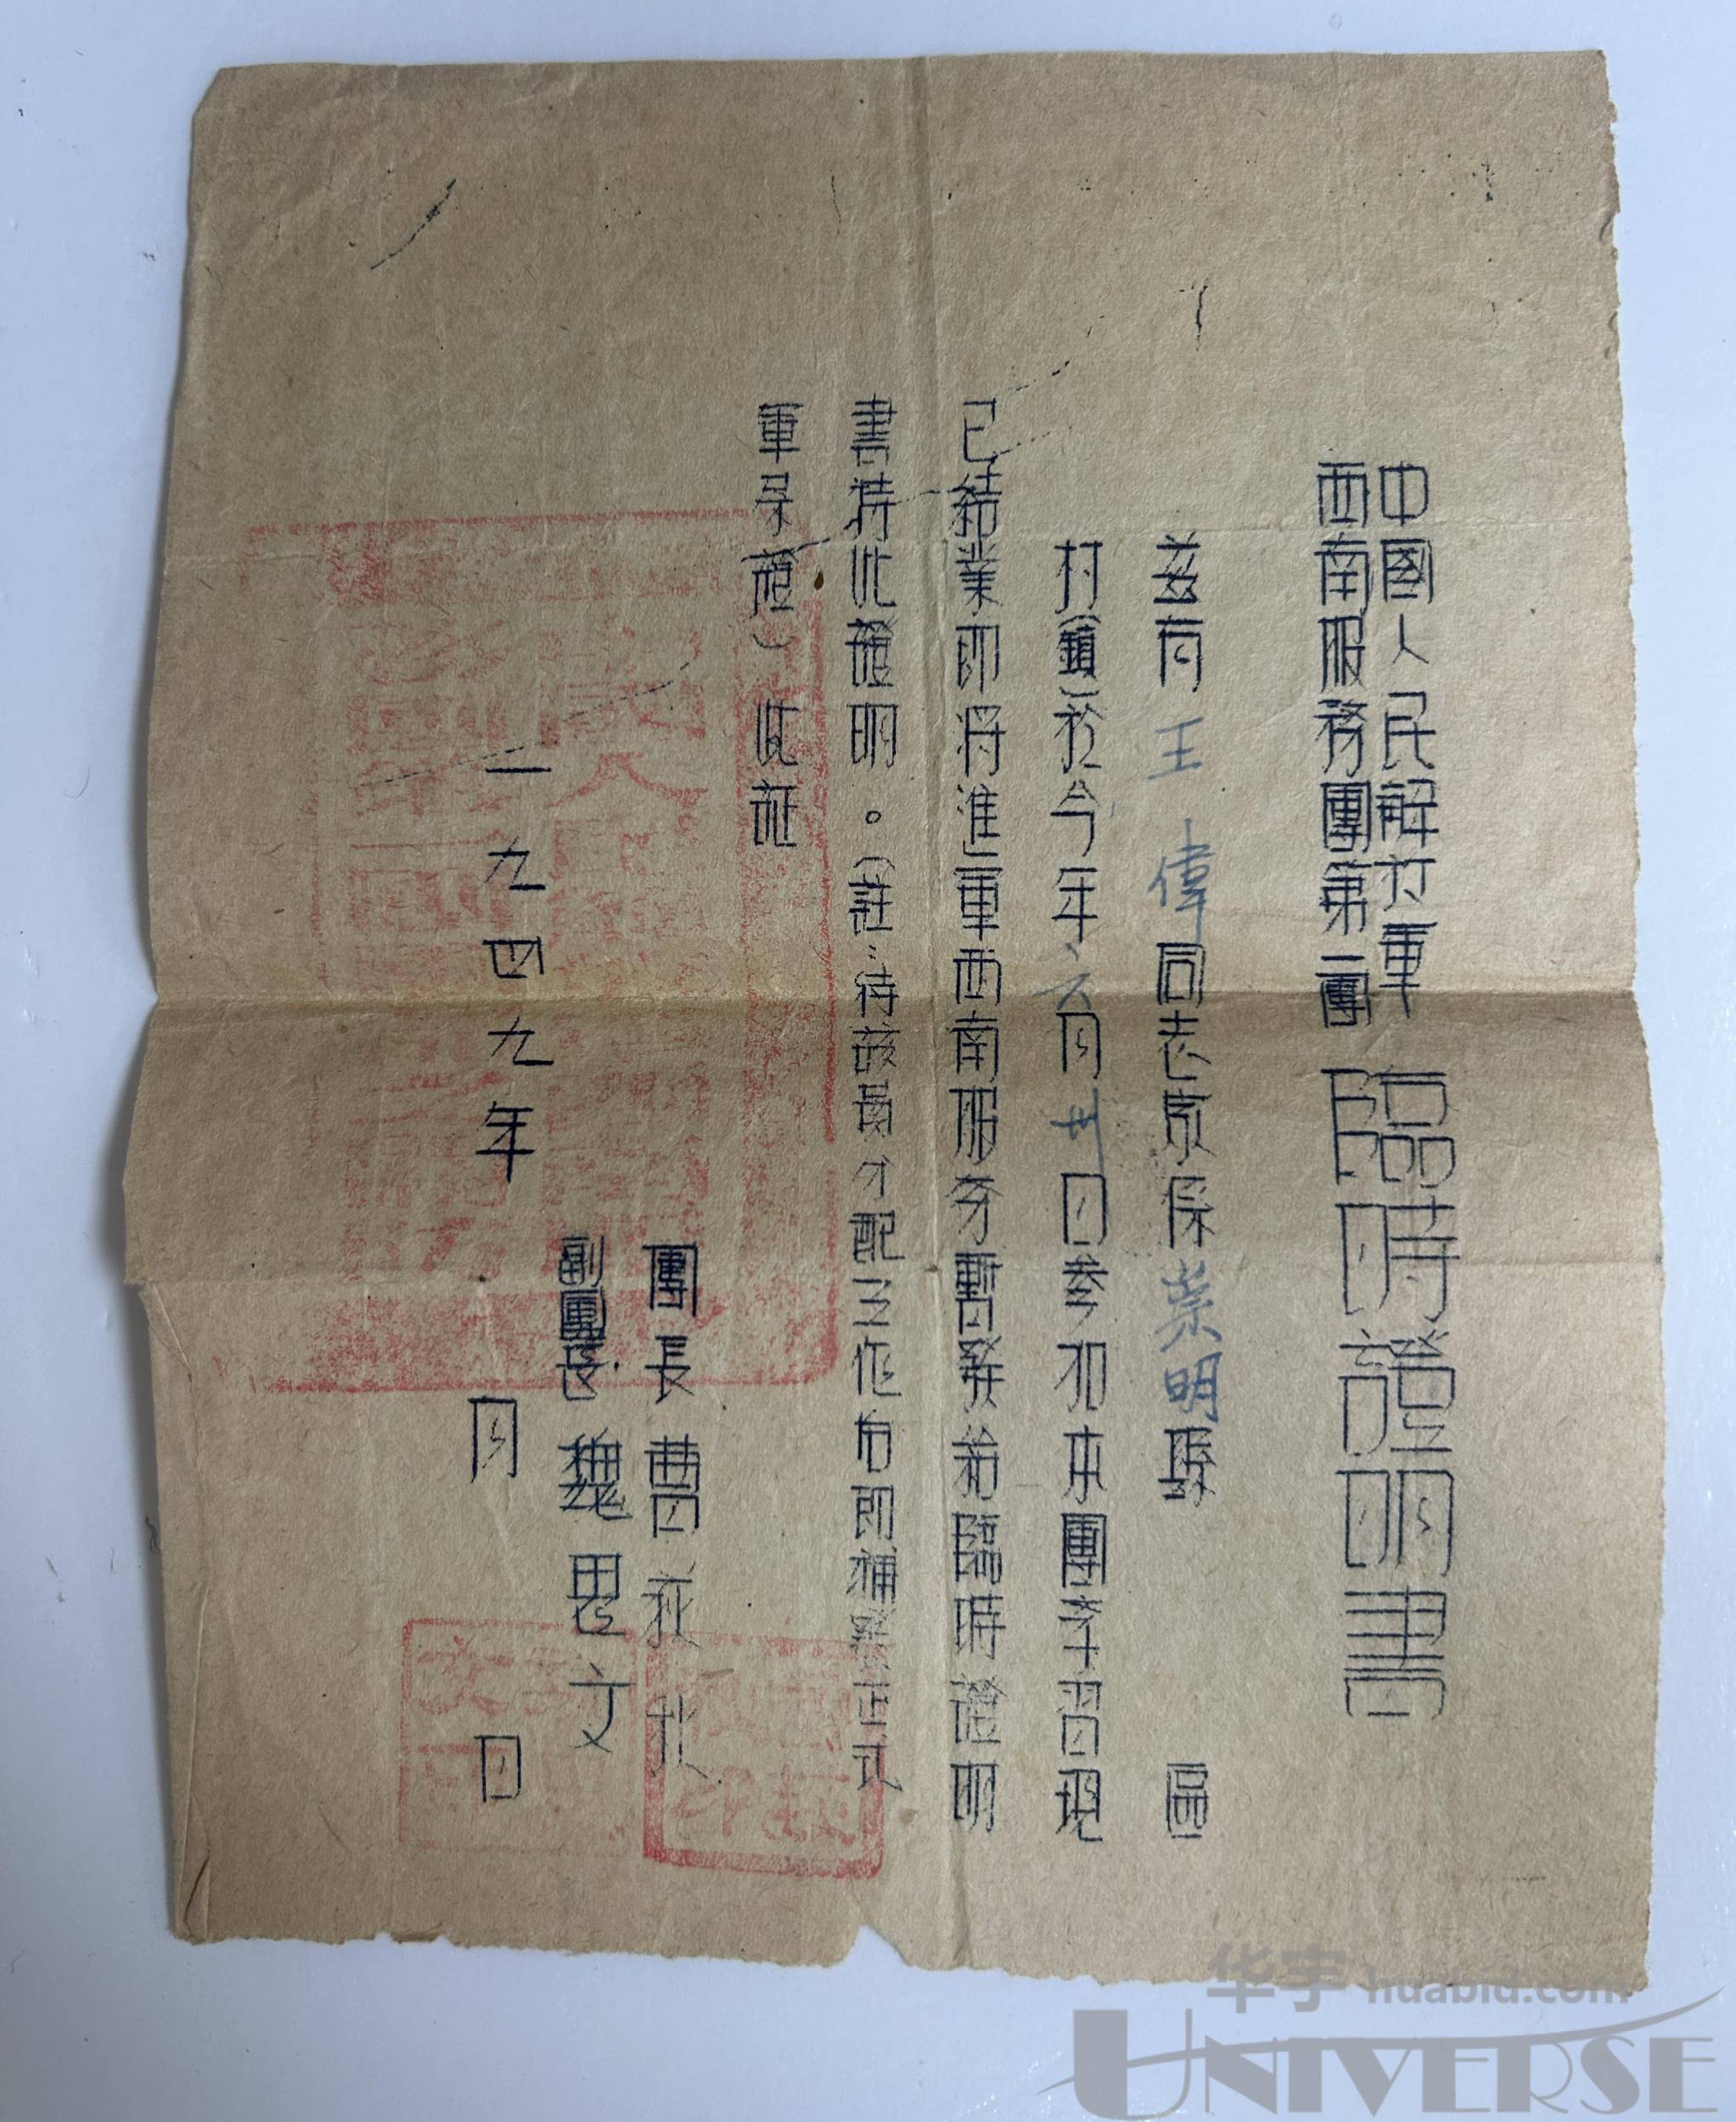 中國人民解放軍
西南服務團第一團
臨時證明書
茲有王偉同志家係崇明縣 區
村(鎮)於今年六月卅日參加本團學習現
已結業即將進軍西南服務暫發給臨時證明
書特此證明。(註:待該員分配工作后即補發正式
軍屬證)此証
團長曹荻秋
副團長魏思文
一九四九年 月 日
华宇 huabid.com
UNIVERSE